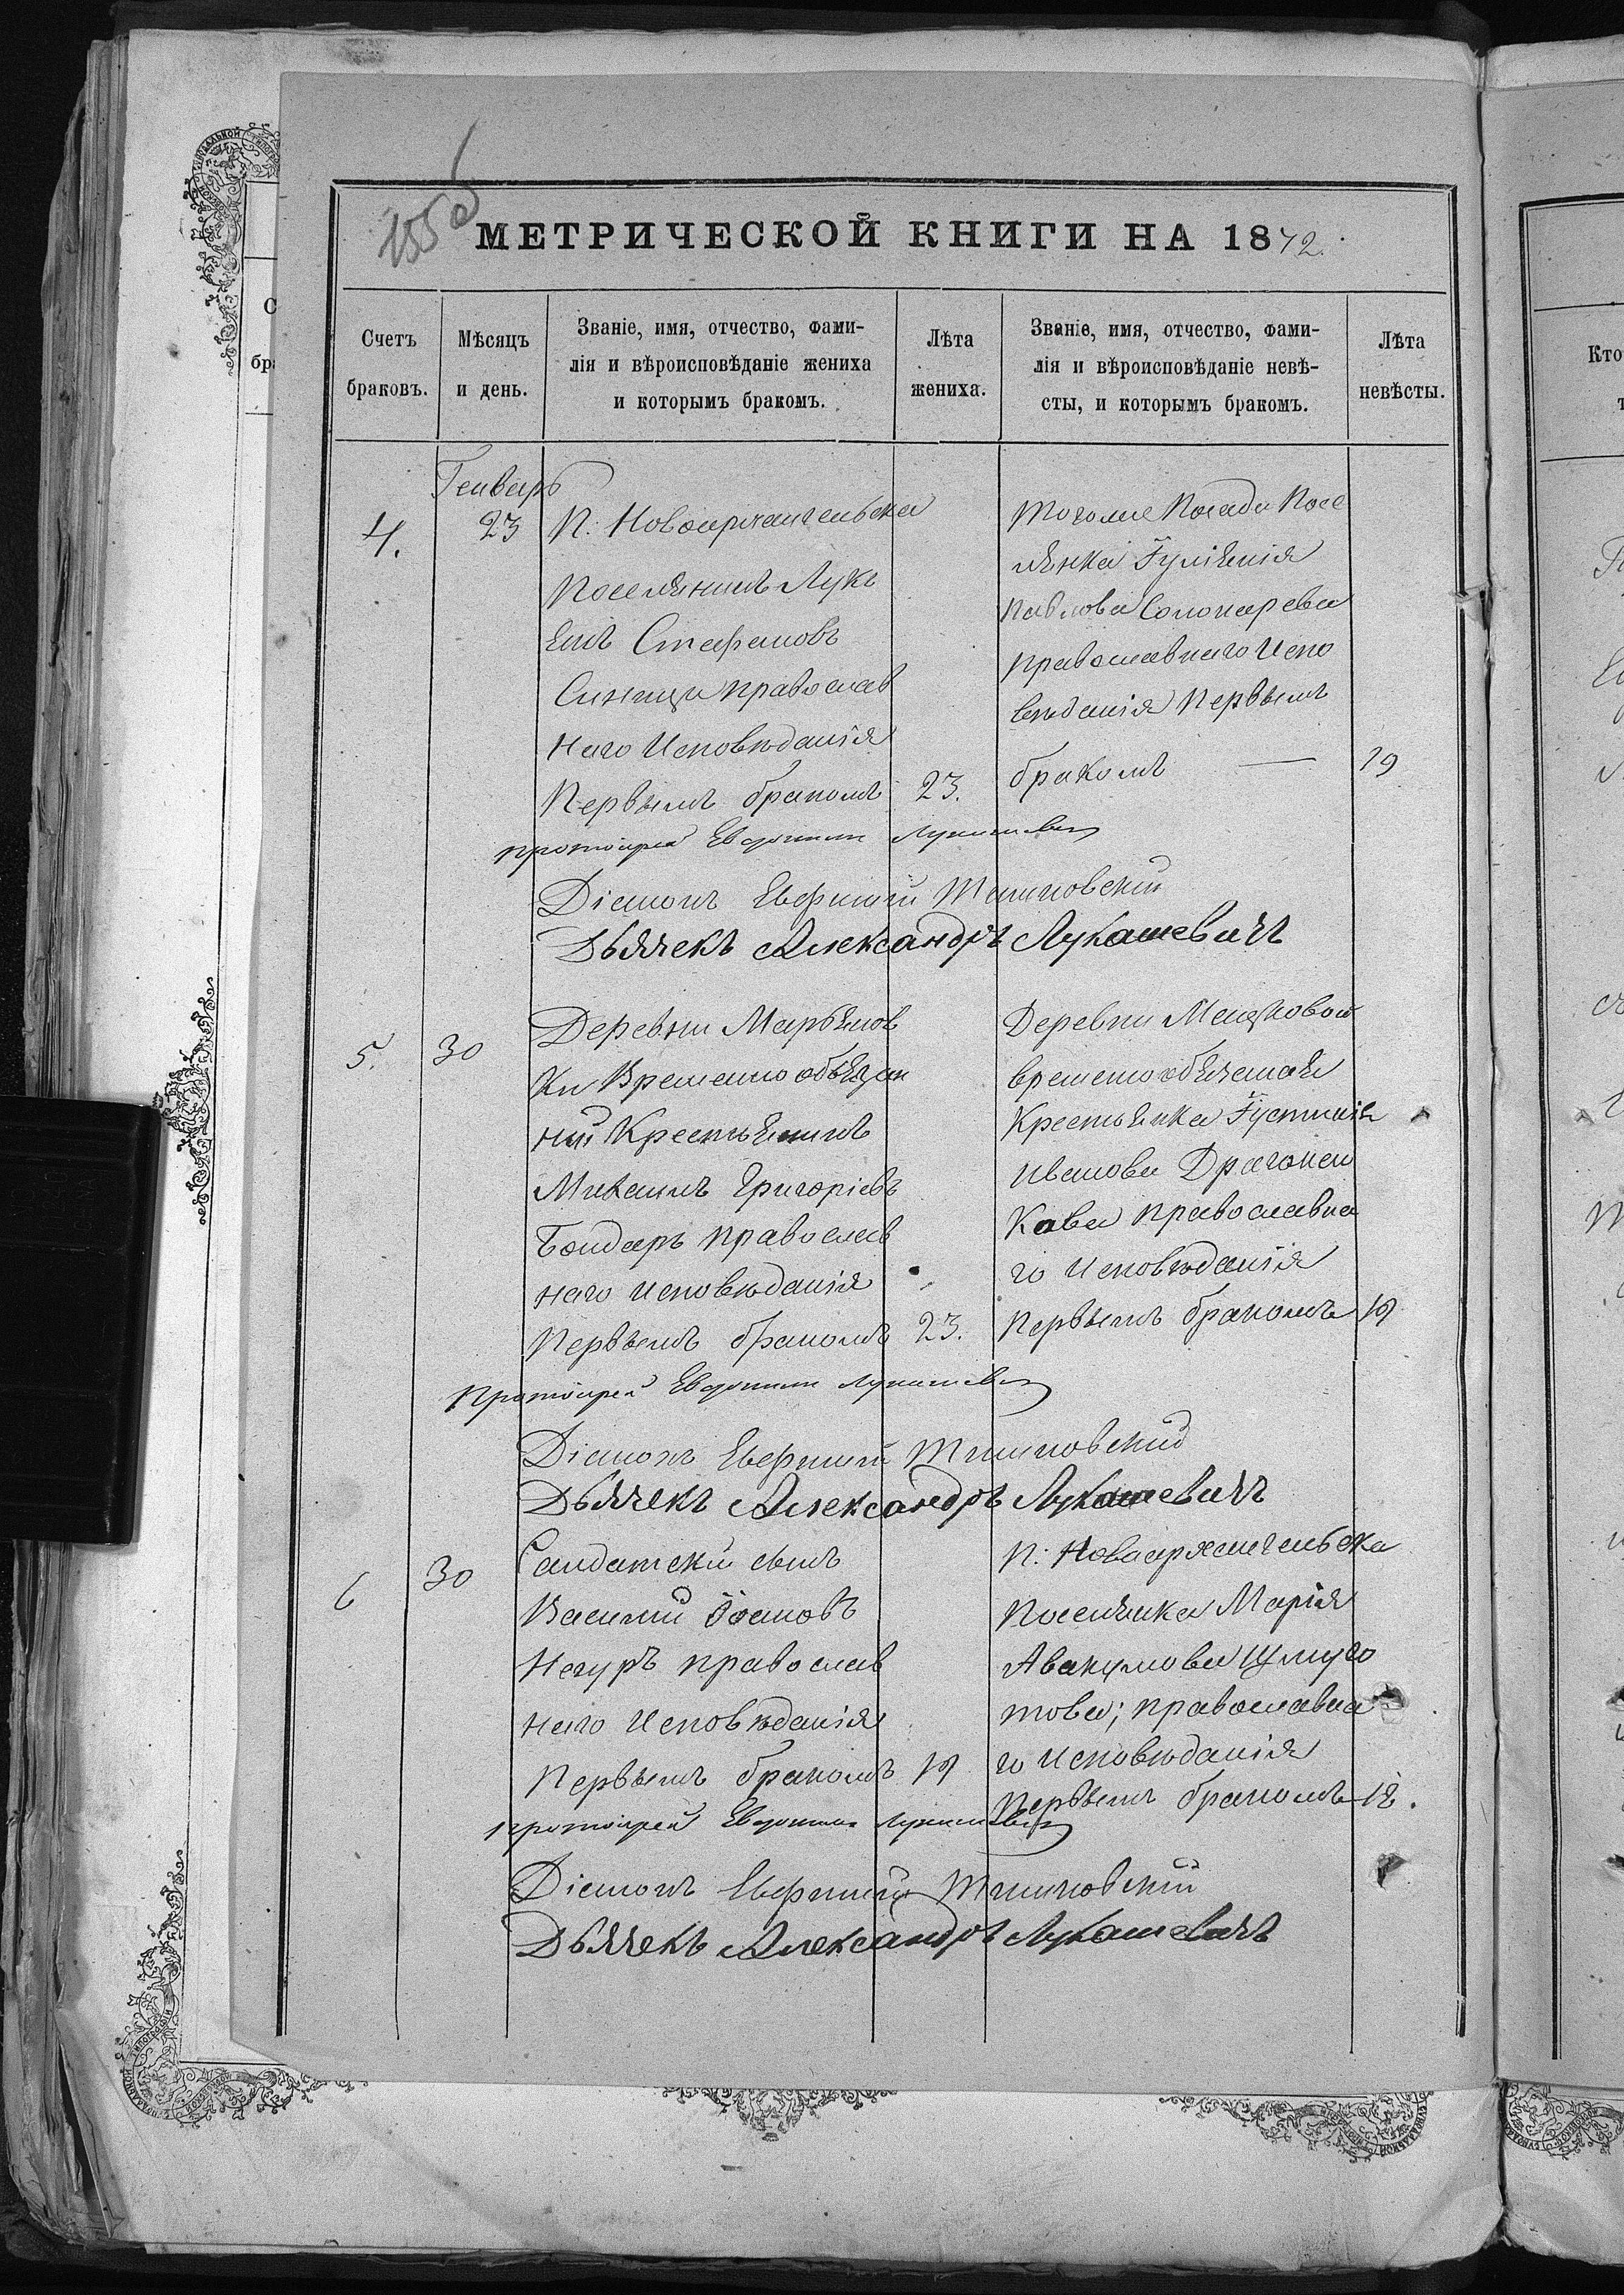 155 об
МЕТРИЧЕСКОЙ КНИГИ НА 1872.
Счетъ браковъ.
Мѣсяцъ и день.
Званіе, имя, отчество, фами-
лія и вѣроисповѣданіе жениха
и которымъ бракомъ.
Лѣта жениха.
Званіе, имя, отчество, фами-
лія и вѣроисповѣданіе невѣ-
сты, и которымъ бракомъ.
Лѣта невѣсты.
4.
Генварь
23
П: Новоархангельска
Поселянинъ Лука
Стефановъ
Синица православ
наго Исповѣданія
Первымъ бракомъ
23.
Тогоже Посада Посе
лянка Іуліянія
Павлова Сономарева
православнаго Испо
вѣданія Первымъ
бракомъ —
19
протоіерей Евфимій Лукашевич
Діаконъ Евфимій Тишновскій
Дьячекъ Александръ Лукашевичъ
5.
30
Деревни Марьянов
ки Временно объязан
ный Крестьянинъ
Михаилъ Григоріевъ
Бондарь православ
наго исповѣданія
Первымъ бракомъ
23.
Деревни Мануковой
временообязаная
Крестьянка Іустинія
Иванова Драган
кова православна
го исповѣданія
Первымъ бракомъ
19
Протоіерей Евфимій Лукашевич
Діаконъ Евфимій Тишновскій
Дьячекъ Александръ Лукашевичъ
6
30
Салдатскій сынъ
Василій Іоановъ
Негуръ православ
наго Исповѣданія
Первымъ бракомъ
19
П: Новоархангельска
Поселянка Марія
Авакумова Шмуго
това; православна
го исповѣданія
Первымъ бракомъ
18.
протоіерей Евфимій Лукашевич
Діаконъ Евфимій Тишновскій
Дьячекъ Александръ Лукашевичъ